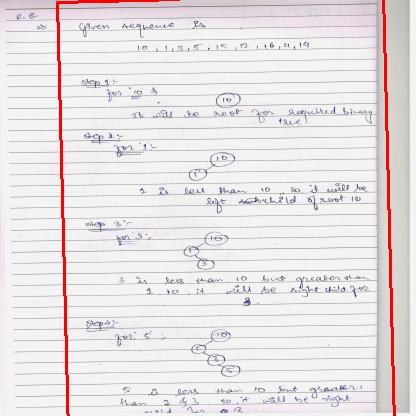 Q.8.
⇒ Given sequence is
10, 1, 3, 5, 15, 12, 16, 4, 14
Step 1:-
for 10 :-
10
It will be root for required binary
tree
Step 2:-
for 1:-
10
1
1 is less than 10 so it will be
left child of root 10.
Step 3:-
for 3:-
10
1
3
3 is less than 10 but greater than
1 so it will be right child for
Step 4:-
for 5:-
10
1
3
5
5 is less than 10 but greater
than 2 & 3 so it will be right
child for 3